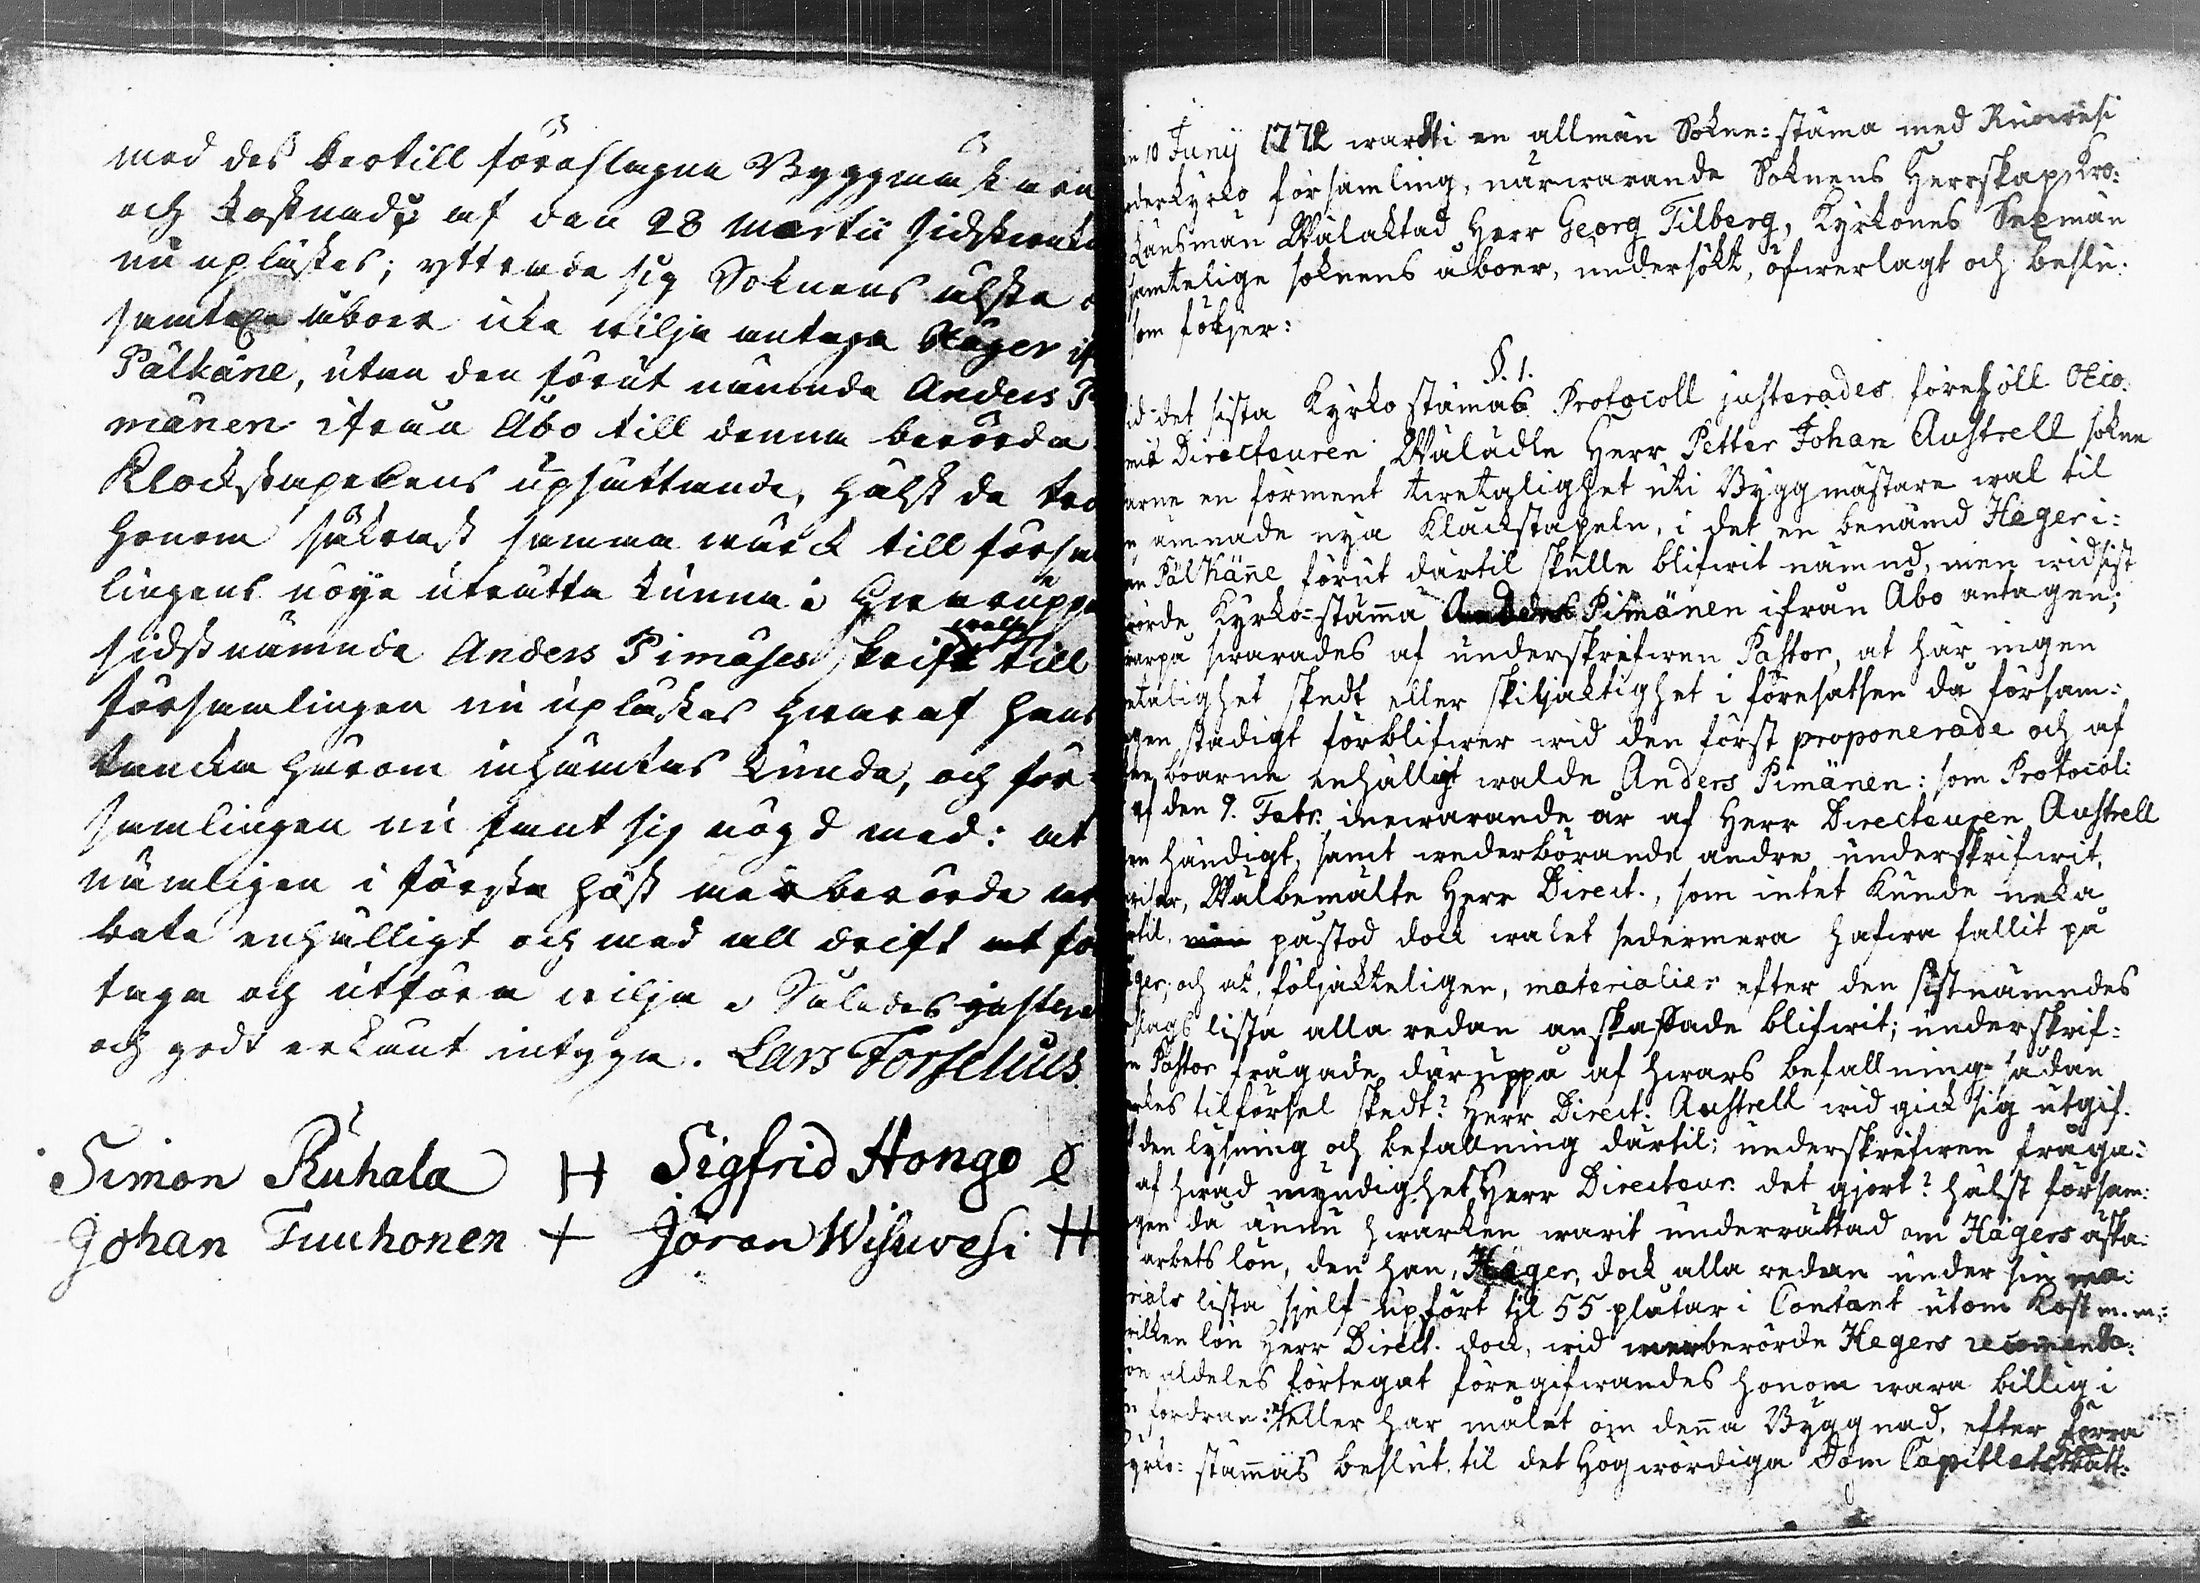 med des dertill föreslagne Byggmästaren
och kostnads af den 28 Martii sidstwekne
nu uplästes; yttrade sig Soknens älste
samtelige åboer icke wilja antaga Häger if
Pälkäne, utan den förut nämnde Anders P
mänen ifrån Åbo till denna berörda
Klockstapelens upsättande, hälst de tro
honom säkrast samma wärck till försam
lingens nöye uträtta kunna. Hwaruppå
sidstnämnde Anders Pimäses skrift till
församlingen nu uplästes hwaraf hans
tancka härom inhämtas kunde, och för-
samlingen nu fant sig nögd med: at
nämligen i första höst merberörde ar
bete enhälligt och med all drift at före
taga och utföra wilja. Således justerat
och godt erkänt intyga. Lars Forselius
Simon Ruhala H Sigfrid Hongo
Johan Tuuhonen + Jöran Wisuwesi H
n 10 Junij 1772 wardt i en allmän Sokne-stäma med Ruowesi
derkyrko församling, närwarande Soknens Herrskap, Kro-
Länsman Wälaktad Herr Georg Tilberg, Kyrkones Sexmän
samtelige soknens åboer, undersökt, öfwerlagt och beslu-
som följer:
§. 1.
id det sista Kyrko stämas Protocoll justerades, förehöll Oeco-
mie Directeuren Wälädle Herr Petter Johan Austrell sokne
arne en förment twetalighet uti Byggmästare wal til
n ämnade nya Klåckstapeln, i det en benämd Häger i-
ån Pälkäne förut därtil skulle blifwit nämnd, men wid sist
rörde Kyrko-stäma Anders Pimänen ifrån Åbo antagen;
warpå swarades af underskrifwen Pastor, at här ingen
etalighet skedt eller skiljaktighet i föresatsen då försam-
gen stadigt förblifwer wid den först proponerade och af
boarne enhälligt walde Anders Pimänen: som Protocol-
af den 9. Febr. inewarande år af Herr Directeuren Austrell
en händigt, samt wederbörande andre underskrifwit,
wisar, Wälbemälte Herr Direct., som intet kunde neka
rtil, men påstod dock walet sedermera hafwa fallit på
ger, och at, följakteligen, materialier efter den sistnämndes
slags lista alla redan anskaffade blifwit; underskrif-
n Pastor frågade däruppå af hwars befallning sådan
rkes tilförsel skedt? Herr Direct: Austrell wid gick sig utgif-
den lysning och befallning därtil; underskrifwen fråga-
af hwad myndighet Herr Directeur: det gjort? hälst försam-
gen då ännu hwarken warit underrättad om Hägers äska-
arbets lön, den han, Häger, dock alla redan under sin ma-
rials lista sjelf upfört til 55 plåtar i Contant utom Kost m.m:
wilken lön Herr Direct. dock, wid merberörde Hegers recomenda-
on aldeles förtegat föregifwandes honom wara billig i
n fordran: eller har målet om denna Byggnad, efter förra
yrko: stämäs beslut, til det Högwördiga Dom Capitlets